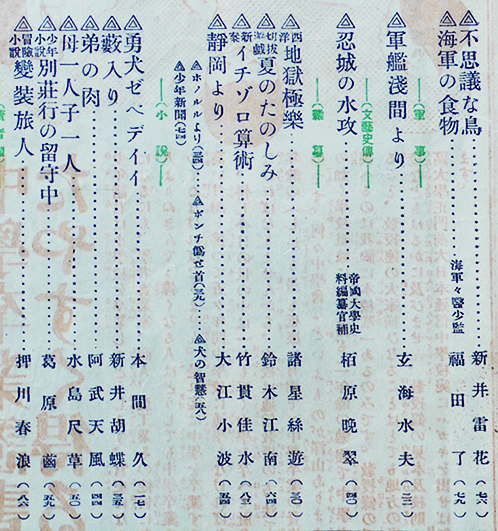 不思議な鳥 新井雷花(七六)
海軍の食物 海軍々醫少監 福田了(七九)
(軍事)
軍艦淺間より 玄海水夫(二三)
(文藝史傳)
忍城の水攻 帝國大學史料編纂官補 栢原晩翠(四〇)
西洋地獄極樂 諸星絲遊(三〇)
切拔海戯夏のたのしみ 鈴木江南(六四)
新案イチゾロ算術 竹貫佳水(八三)
靜岡より 大江小波(五四)
ホノルルより ポンチ僞せ首(三九) 犬の智慧(五八)
少年新聞(七四)
(小說)
勇犬ゼベデイイ 本間久(一七)
藪入り 新井胡蝶(三五)
弟の肉 阿武天風(四四)
母一人子一人 水島尺草(五〇)
少年小說別莊行の留守中 葛原𦽳(五九)
冒險小說變裝旅人 押川春浪(八六)